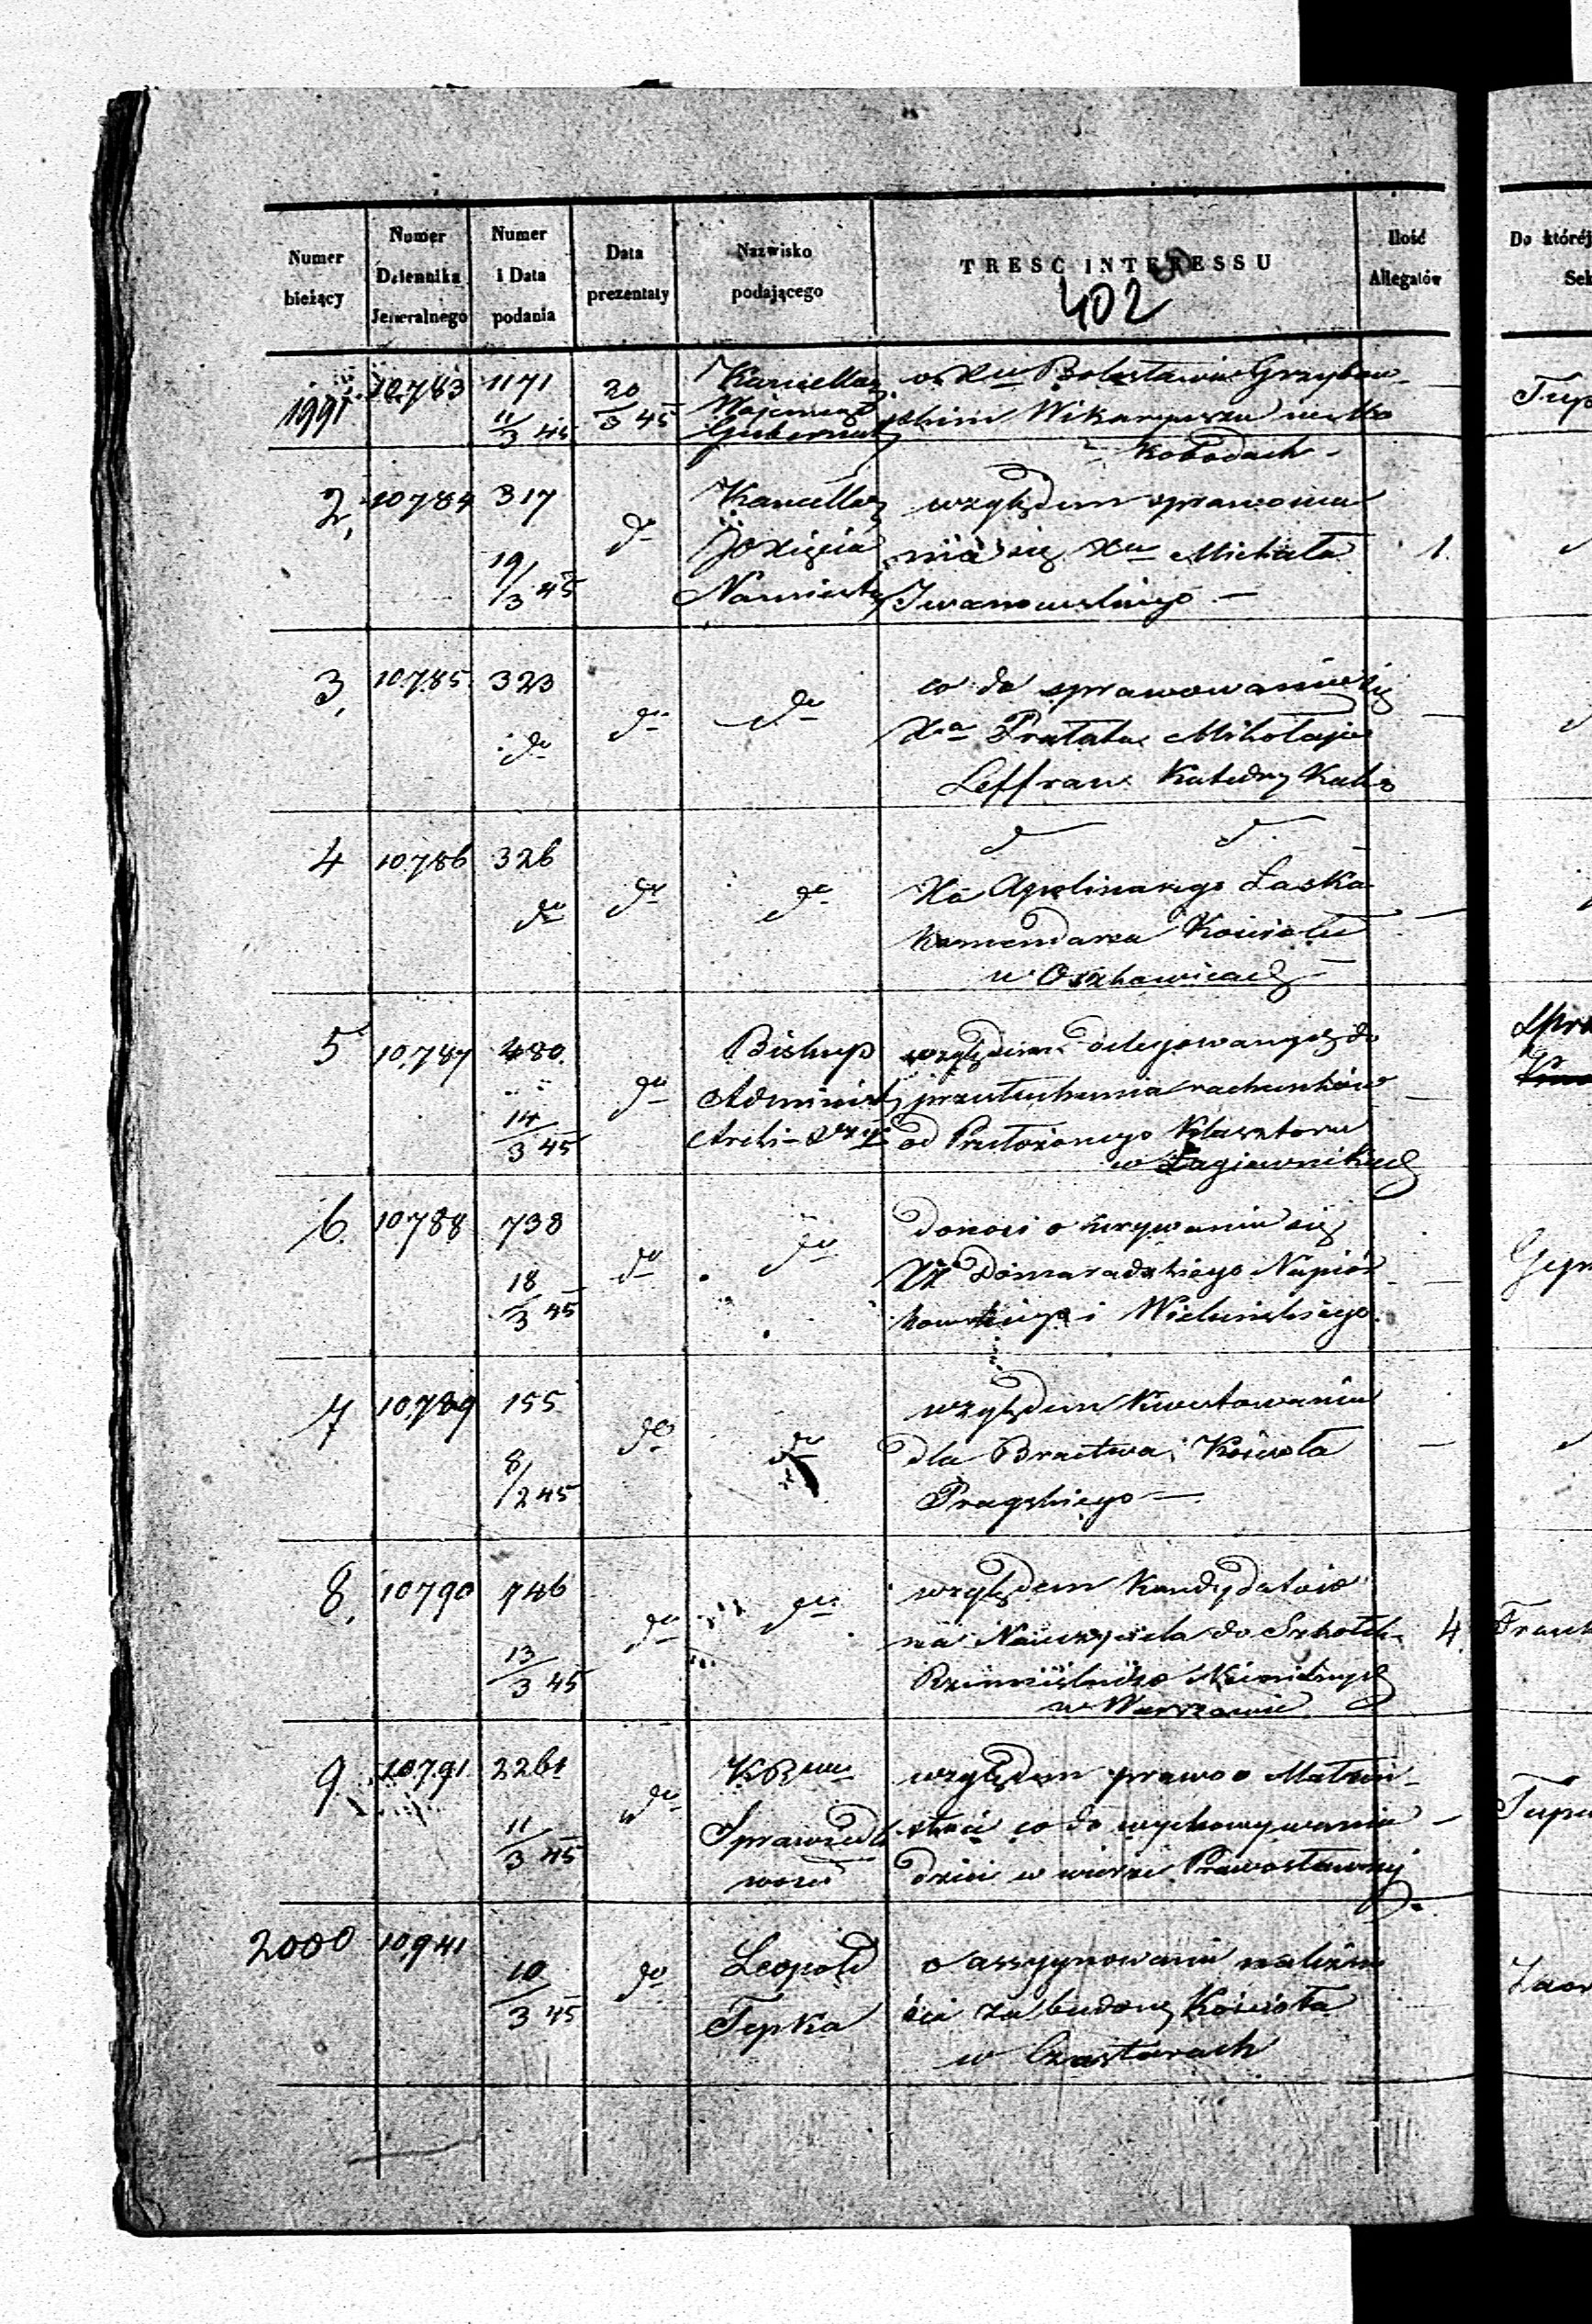 Numer bieżący
Numer Dziennika Jeneralnego
Numer i Data podania
Data prezentaty
Nazwisko podającego
TRESC INTERESSU
Ilość Allegatów
Do któréj
Sek
402
1991 10783 1171 11/3 45 20/3 45
Kancellar
Wojenneg
Gubernat
o Xu Bolesławie Grzybow
skim Wikaryuszu
2, 10784 317 19/3 45 do
Kancellar
JO Xięcia
Namiestn
względem sprawowa
nia się Xa Michała
Iwanowskiego —
1.
3, 10785 323 do do do
co do sprawowania się
Xa Prałata Mikołaja
Leffran Katedry Kalis
4 10786 326 do do do
d d
Xa Apolinarego Łaska
Komendarza Kościoła
w
5 10787 480. 14/3 45 do
Biskup
Administ
Archi-
względem delegowanych do
przesłuchania rachunków
od Przełożonego Klasztoru
w Łagiewnikach
6. 10788 738 18/3 45 do do
Donosi o ukrywaniu się
XX Domaradzkiego Napiór
kowskiego i Wieluńskiego.
7 10789 155 8/2 45 do do
względem Kwestowania
dla Bractwa Kościoła
Pragskiego —
8, 10790 746 13/3 45 do do
względem Kandydatów
na Nauczyciela do Szkółek
Rzemieślniczo Niedzielnych
w Warszawie
4.
9 10791 2261 11/3 45 do
KR
Sprawiedli
wości
względem prawa o Małżeń
stwie co do wychowywania
dzieci w wierze Prawosławnej
2000 10941 10/3 45 do
Leopold
Tepka
o assygnowanie należno
ści za budowę Kościoła
w Czastarach